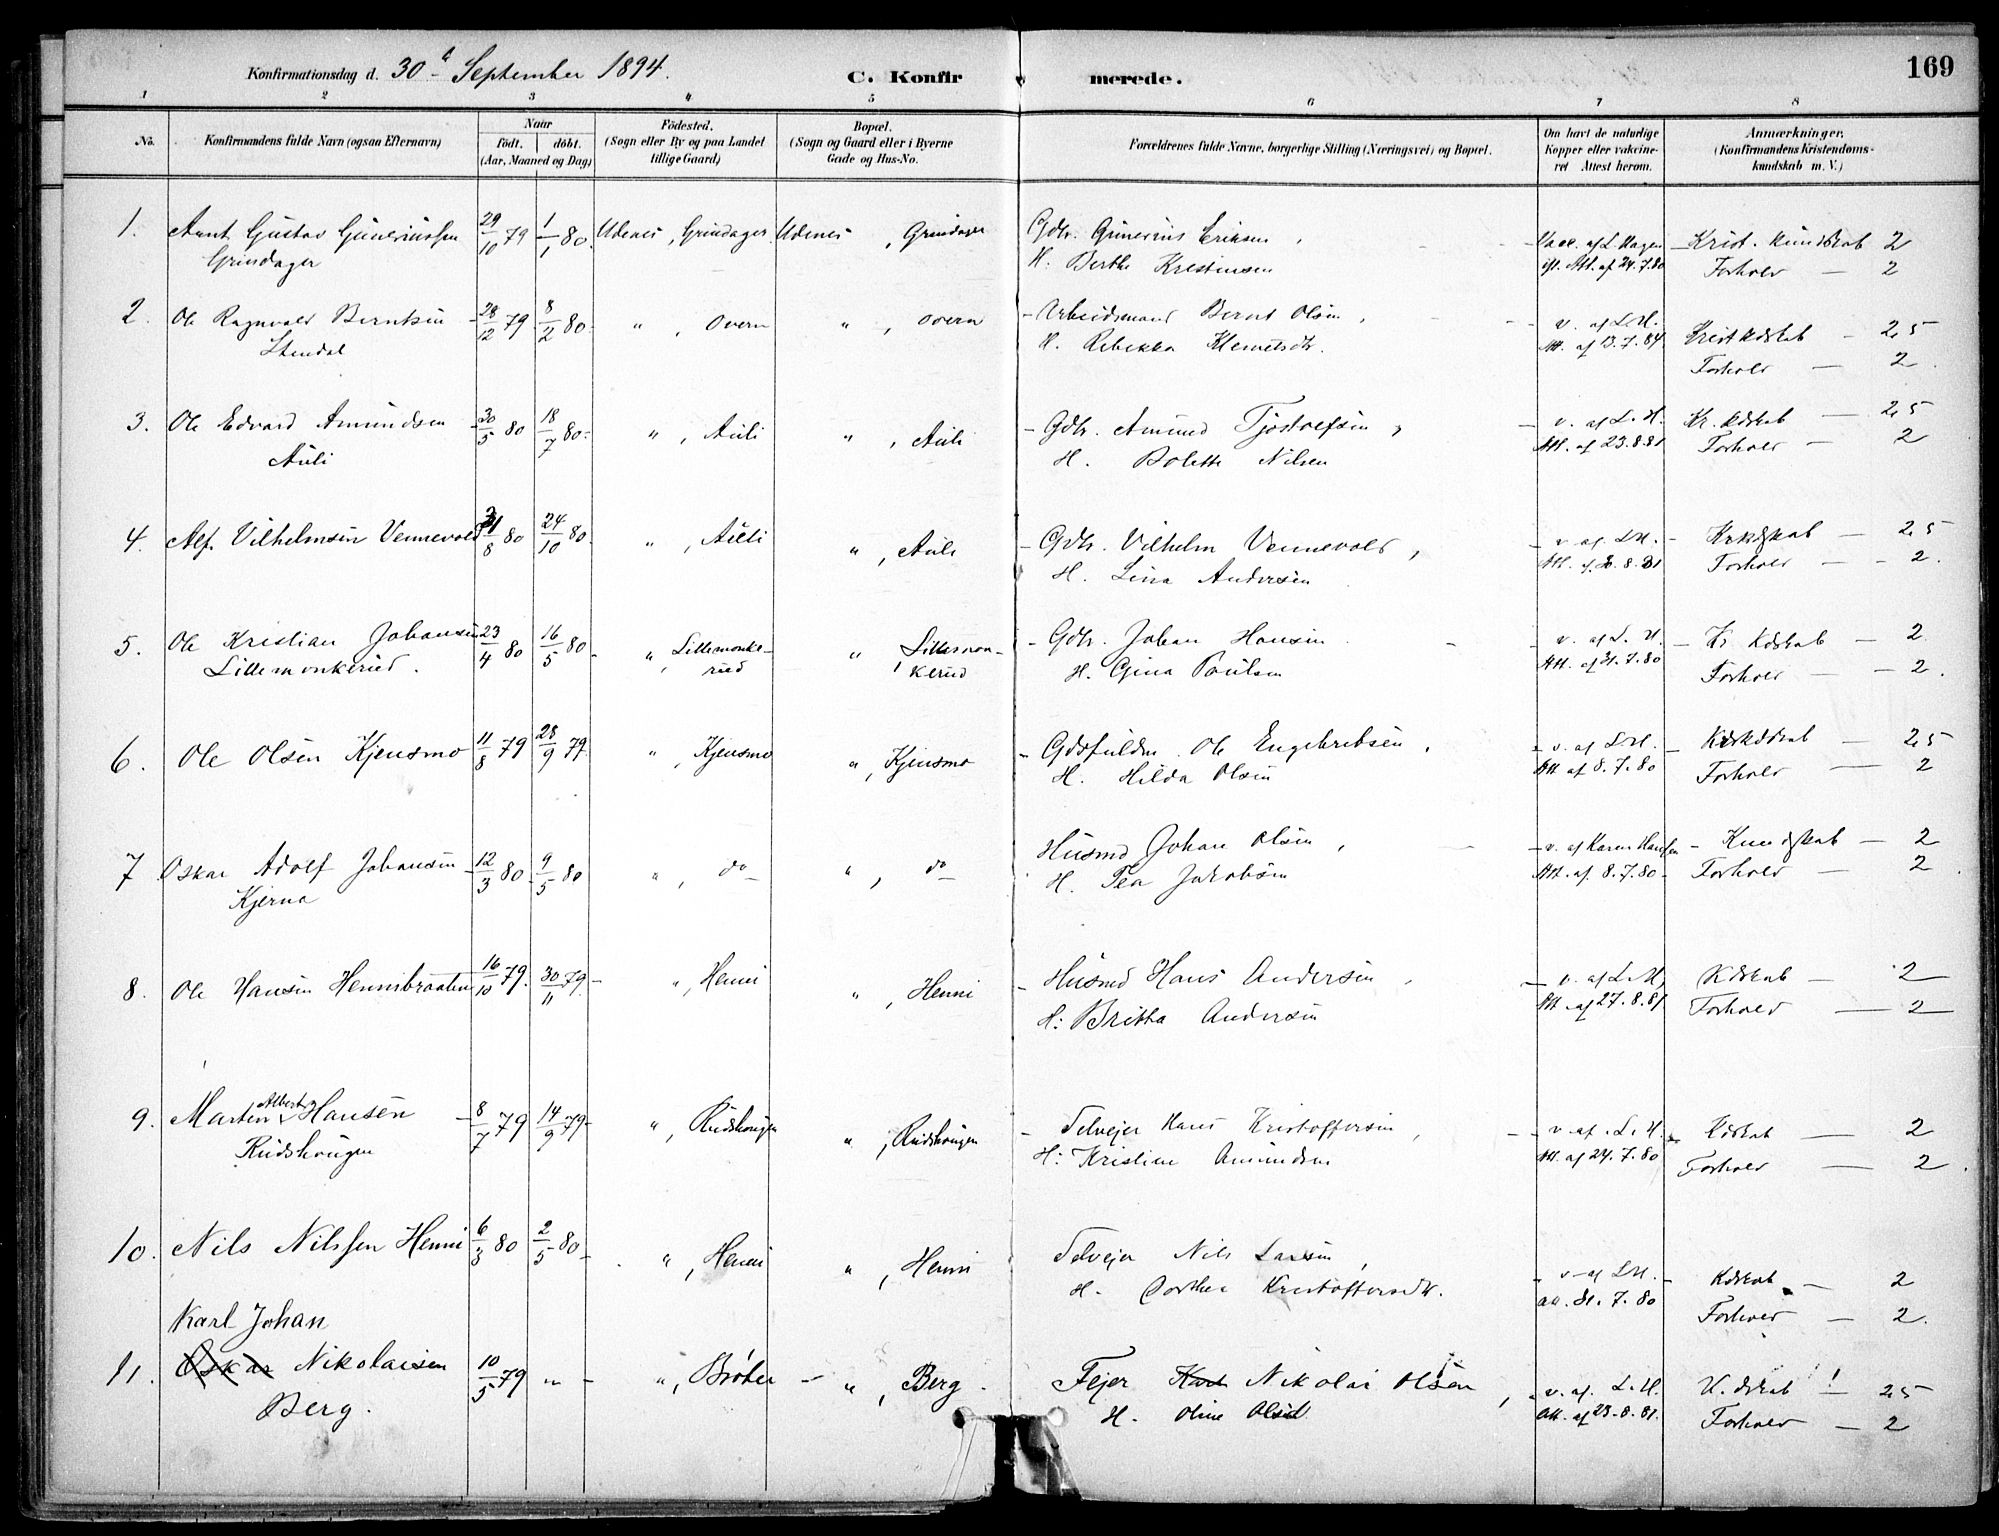 Konfirmationsdag d. 30te September 1894.
C. Konfirmerede.
169
1 2 3 4 5 6 7 8
No.
Konfirmandens fulde Navn (ogsaa Efternavn)
Naar
født. døbt.
(Aar, Maaned og Dag)
Fødested.
(Sogn eller By og paa Landet
tillige Gaard)
Bopæl.
(Sogn og Gaard eller i Byerne
Gade og Hus-No.
Forældrenes fulde Navne, borgerlige Stilling (Næringsvei) og Bopæl.
Om havt de naturlige
Kopper eller vakcine-
ret Attest herom.
Anmærkninger.
(Konfirmandens Kristendoms-
kundskab m. V.)
1. Aunt Gustav Guneriussen 29/10 79 1/1 80. Udenes, Grindager Udenes, Grindager Gdbr. Gunerius Eriksen, Vacc. af L. Hagen Krist. kundskab 2
Grindager H. Berthe Kristensen Att. af 24.7.80 Forhold — 2
2. Ole Ragnvald Berntsen 28/12 79 8/2 80 " , Overn " , Overn Arbeidsmand Bernt Olsen, v. af L.H. Kristkdskab — 2,5
Stendal H. Rebekka Klemetsdtr. Att. af 13.7.84 Forhold — 2
3. Ole Edvard Amundsen 30/5 80 18/7 80 " , Auli " , Auli Gdbr. Amund Tjøstolfsen, v. af L.H. Kr. kdskab — 2,5
Auli H. Bolette Nilsen Att. af 23.8.81 Forhold — 2
4. Alf Vilhelmsen Vennevold 31/8 80 24/10 80. " , Auli " , Auli Gdbr. Vilhelm Vennevold, v. af LH. Krkdskab — 2,5
H. Lina Andersen Forhold — 2.
5. Ole Kristian Johansen 23/4 80 16/5 80 " , Lillemonke- " , Lillemon- Gdbr. Johan Hansen v. af L. H. Kr Kdskab — 2
Lillemonkerud. rud kerud H. Gina Poulsen Att. af 31.7.80 Forhold — 2.
6. Ole Olsen Kjensmo 11/8 79 28/9 79. " , Kjensmo " , Kjensmo Ole Engebretsen, v. af LH. — 2,5
H. Hilda Olsen Att af 8.7.80 Forhold — 2
7 Oskar Adolf Johansen 12/3 80 9/5 80 " , do " , do Husmd Johan Olsen, v. af Karen Hansen Kundskab — 2
Kjerna H. Pea Jakobsen Att. af. 8.7.80 Forhold — 2
8. Ole Hansen Hennibraaten 16/10 79. 30/11 79. " , Henni " , Henni Husmd Hans Andersen, v. af L.H, Kdskab — 2
H: Britha Andersen Att. af 27.8.81 Forhold — 2
9. Martin Albert Hansen 8/7 79 14/9 79 " , Rudshougen " , Rudshougen Selvejer Hans Kristoffersen, v. af. L.H. Kdskab — 2
Rudshougen H: Kristine Amundsen Att. af 24.7.80 Forhold — 2.
10. Nils Nilssen Henni 6/3 80 2/5 80 " , Henni " , Henni Selvejer Nils Larsen, v. af LH. Kdskab — 2
H. Dorthea Kristoffersdtr. Att. 31.7.80 Forhold — 2.
Karl Johan
11. Oskar Nikolaisen 10/5 79 " " , Brøter " , Berg. Fejer Karl Nikolai Olsen, v. af. L.H. K.dskab ! 2,5
Berg. H. Oline Olsd. Att. af 23.8.81. Forhold — 2